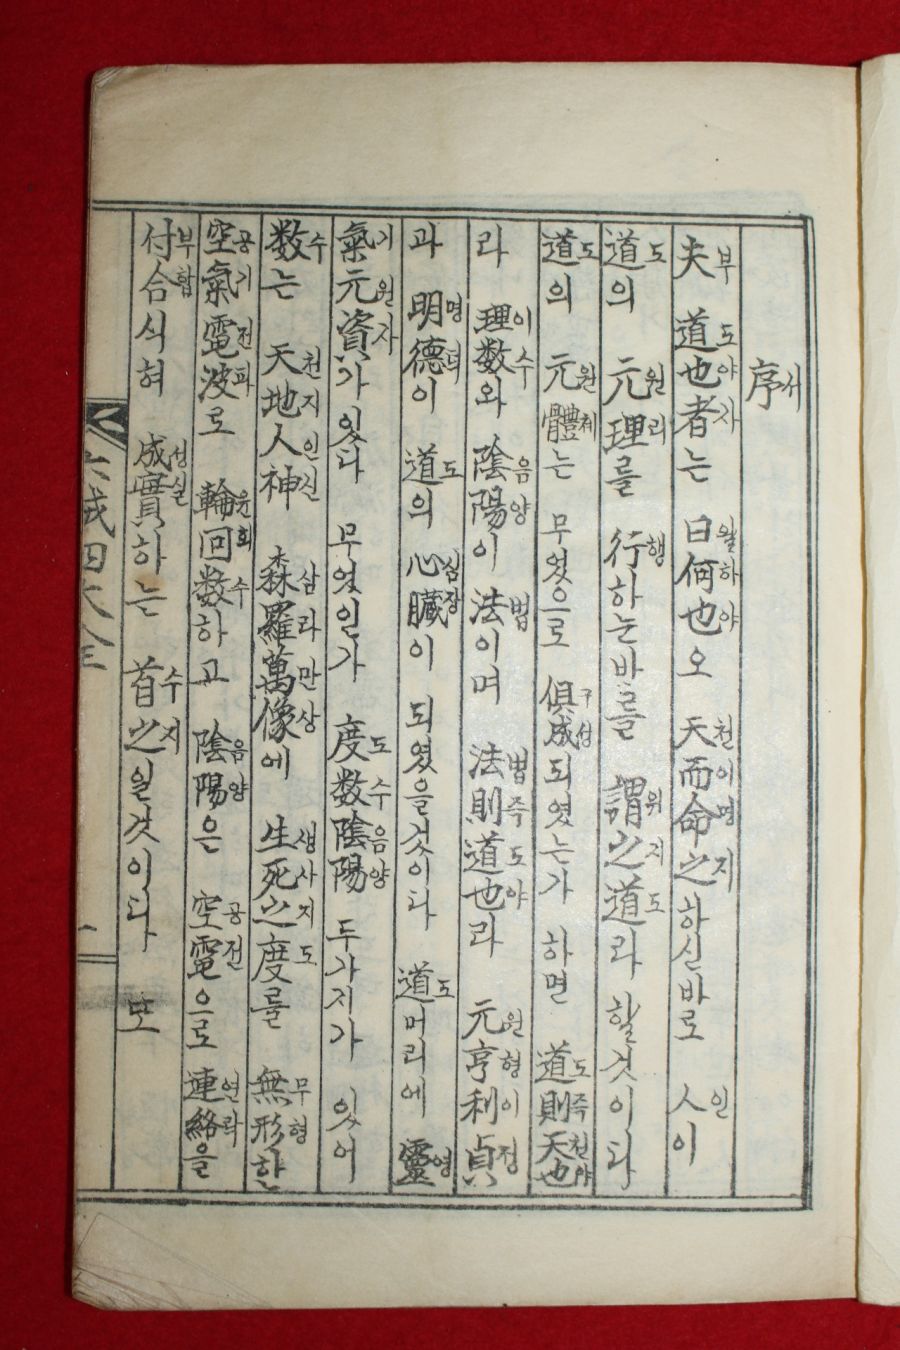 序
서
夫 道也者는 曰何也오 天而命之하신바로 人이
부 도야자 왈하야 천이명지 인
道의 元理를 行하는바를 謂之道라 할것이다
도 원리 행 위지도
道의 元體는 무었으로 俱成되였는가 하면 道則天也
도 원체 구성 도즉천야
라 理数와 陰陽이 法이며 法則道也라 元亨利貞
이수 음양 법 법즉도야 원형이정
과 明德이 道의 心臟이 되였을것이다 道머리에 靈
명덕 도 심장 도 영
氣元資가 있다 무었인가 度数陰陽 두가지가 있어
기원자 도수음양
数는 天地人神 森羅萬像에 生死之度를 無形한
수 천지인신 삼라만상 생사지도 무형
空氣電波로 輪回数하고 陰陽은 空電으로 連絡을
공기전파 윤회수 음양 공전 연락
付合식혀 成實하는 首之일것이다 또
부합 성실 수지